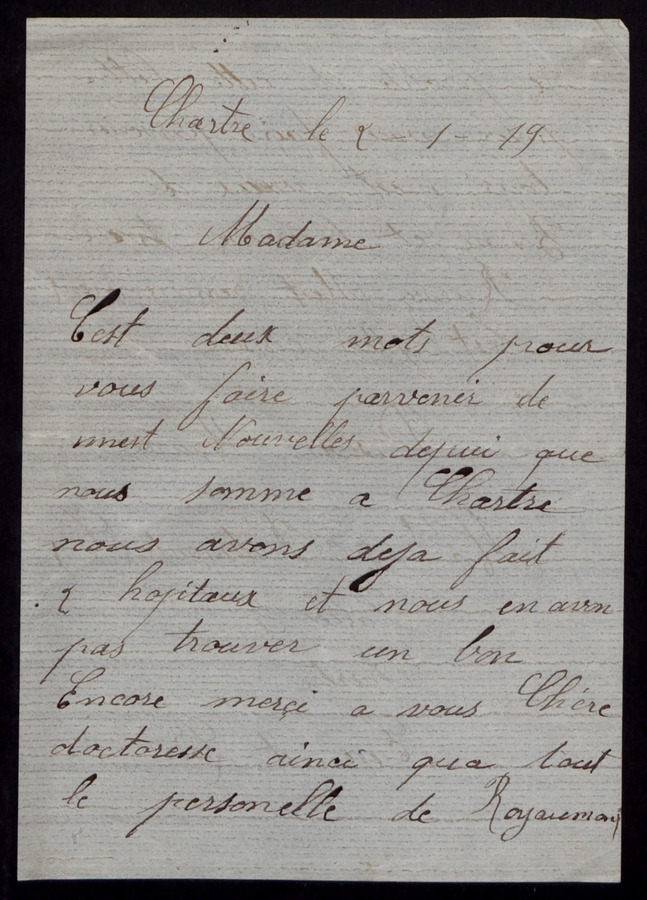 Chartre le 2 - 1 - 19
Madame
C'est deux mots pour
vous faire parvenir de
mest Nouvelles depui que
nous somme a Chartre
nous avons deja fait
2 hopitaux et nous en avon
pas trouver un bon
Encore merçi a vous Chére
doctoresse ainci qua tout
le personelle de Royaumont